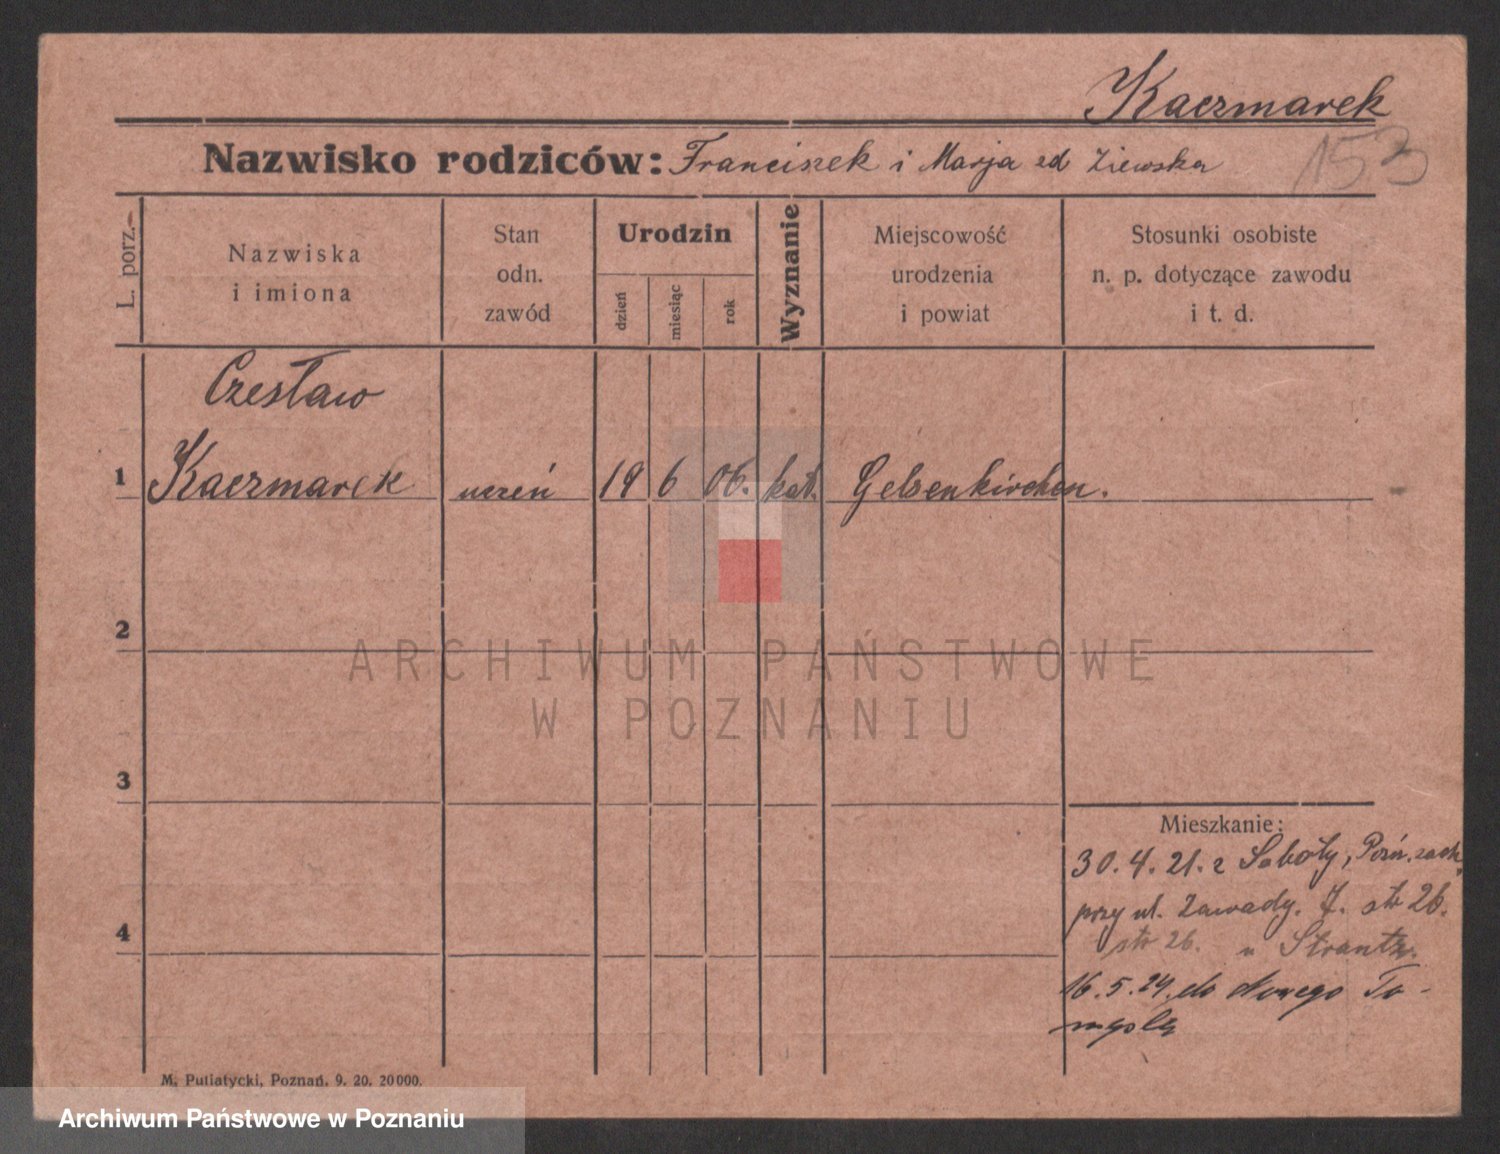 Kaczmarek
Nazwisko rodziców: Franciszek i Marja zd Ziewska
153
L. porz.
Nazwiska
i imiona
Stan
odn.
zawód
Urodzin
dzień
miesiąc
rok
Wyznanie
Miejscowość
urodzenia
i powiat
Stosunki osobiste
n. p. dotyczące zawodu
i t. d.
Czesław
1 Kaczmarek uczeń 19 6 06. kat. Gelsenkirchen.
2
ARCHIWUM PAŃSTWOWE
W POZNANIU
3
Mieszkanie:
30.4.21. z Soboty, Pozn. zach.
przy ul. Zawady. 7. str 26.
4
str 26. u Strantz.
16.5.24. do Nowego To-
myśla
M. Putiatycki, Poznań. 9. 20. 20000.
Archiwum Państwowe w Poznaniu